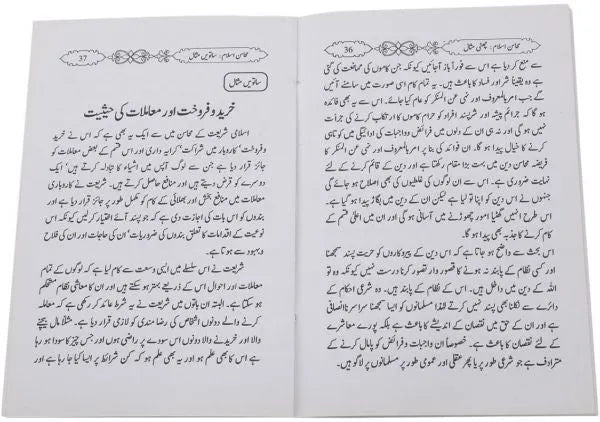 محاسن اسلام: چھٹی مثال
36
سے منع کر دیا ہے اس سے فوراً باز آ جائیں کیونکہ جن کاموں کی ممانعت کی گئی
ہے وہ یقیناً شر اور فساد کا باعث ہیں۔ یہ تمام کام اسی صورت میں سامنے آئیں
گے جب امر بالمعروف اور نہی عن المنکر کو عام کیا جائے۔ اس سے یہ بھی فائدہ
ہو گا کہ جرائم پیشہ اور شر پسند افراد کو حرام کاموں کا ارتکاب کرنے کی جرأت
نہیں ہو گی اور نہ ہی ان کے دلوں میں فرائض و واجبات کی ادائیگی میں کوتاہی
کرنے کا خیال پیدا ہو گا۔ ان فوائد کی بنا پر امر بالمعروف اور نہی عن المنکر کا
فریضہ محاسن دین میں بہت بڑا مقام رکھتا ہے اور دین کے قائم کرنے کے لئے
نہایت ضروری ہے۔ اس سے ان لوگوں کی غلطیوں کی بھی اصلاح ہو جائے گی
جنہوں نے اس دین کو اپنا تو لیا ہے لیکن ان کے دین میں بگاڑ پیدا ہو گیا ہے۔
اس طرح انہیں گھٹیا امور چھوڑنے میں آسانی ہو گی اور ان میں اعلیٰ قسم کے
کام کرنے کا جذبہ بھی پیدا ہو گا۔
اس بحث سے واضح ہو جاتا ہے کہ اس دین کے پیروکاروں کو حریت پسند سمجھنا
اور کسی نظام کے پابند نہ ہونے کا قصور وار تصور کرنا درست نہیں کیونکہ وہ تو
اللہ کے دین میں داخل ہیں۔ اس کے نظام کے پابند ہیں۔ وہ شرعی احکام کے
دائرے سے نکلنا بھی پسند نہیں کرتے لہٰذا مسلمانوں کو ایسا سمجھنا سراسر نا انصافی
ہے اور ان کے حق میں نقصان کے اندیشے کا باعث ہے بلکہ پورے معاشرے
کے لئے نقصان کا باعث ہے۔ خصوصاً ان واجبات و فرائض کو پامال کرنے کے
مترادف ہے جو شرعی طور پر یا پھر عقلی اور عمومی طور پر مسلمانوں پر لاگو ہیں۔
محاسن اسلام: ساتویں مثال
37
ساتویں مثال
خرید و فروخت اور معاملات کی حیثیت
اسلامی شریعت کے محاسن میں سے ایک یہ بھی ہے کہ اس نے خرید
و فروخت، کاروبار میں شراکت، کرایہ داری اور اس قسم کے بعض معاملات کو
جائز قرار دیا ہے جن سے لوگ آپس میں اشیاء کا تبادلہ کرتے ہیں، ایک
دوسرے کو قرض دیتے ہیں اور منافع حاصل کرتے ہیں۔ شریعت نے کاروباری
معاملات میں منافع بخش اور بھلائی کے کام کو مکمل طور پر جائز قرار دیا ہے اور
بندوں کو اس بات کی اجازت دی ہے کہ جو پسند آئے اختیار کر لیں کیونکہ اس
نوعیت کے اقدامات کا تعلق بندوں کی ضروریات، ان کی حاجات اور ان کی فلاح
و بہبود سے ہوتا ہے۔
شریعت نے اس سلسلے میں ایسی وسعت سے کام لیا ہے کہ لوگوں کے تمام
معاملات اور احوال اس کے ذریعے بہتر ہو سکتے ہیں اور ان کا معاشی نظام مستحکم
ہو سکتا ہے۔ البتہ ان باتوں میں شریعت نے یہ شرط عائد کر رکھی ہے کہ معاملہ
کرنے والے دونوں اشخاص کی رضا مندی کو لازمی قرار دیا ہے۔ مثلاً مال بیچنے
والا اور خریدنے والا دونوں اس سودے پر راضی ہوں اور جس چیز کا سودا ہو رہا
ہے اس کا بھی علم ہو اور یہ بھی علم ہو کہ کن شرائط پر ایسا کیا جا رہا ہے اور